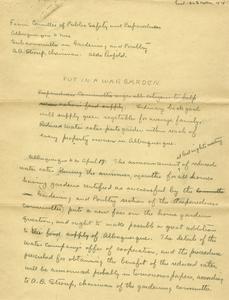 From Committee of Public Safety and Preparedness
Albuquerque
Subcommittee on Gardening and Poultry
A.B. Stroup, Chairman. Aldo Leopold.
PUT IN A WAR GARDEN
Preparedness Committee urges all citizens to help
food supply. Ordinary back yard
will supply green vegetables for average family.
Reduced water rates puts garden within reach of
every property owner in Albuquerque.
Albuquerque Apr 19. The announcement of reduced
water rates during the summer months for all
gardens certified as successful by the
Gardening and Poultry section of the Preparedness
committee, puts a new face on the home garden
question, and ought to make possible a great addition
to the food supply of Albuquerque. The details of the
Water Company's offer of cooperation, and the procedure
needed for obtaining the benefit of the reduced rates,
will be announced probably in tomorrow's papers, according
to A.B. Stroup, chairman of the gardening committee